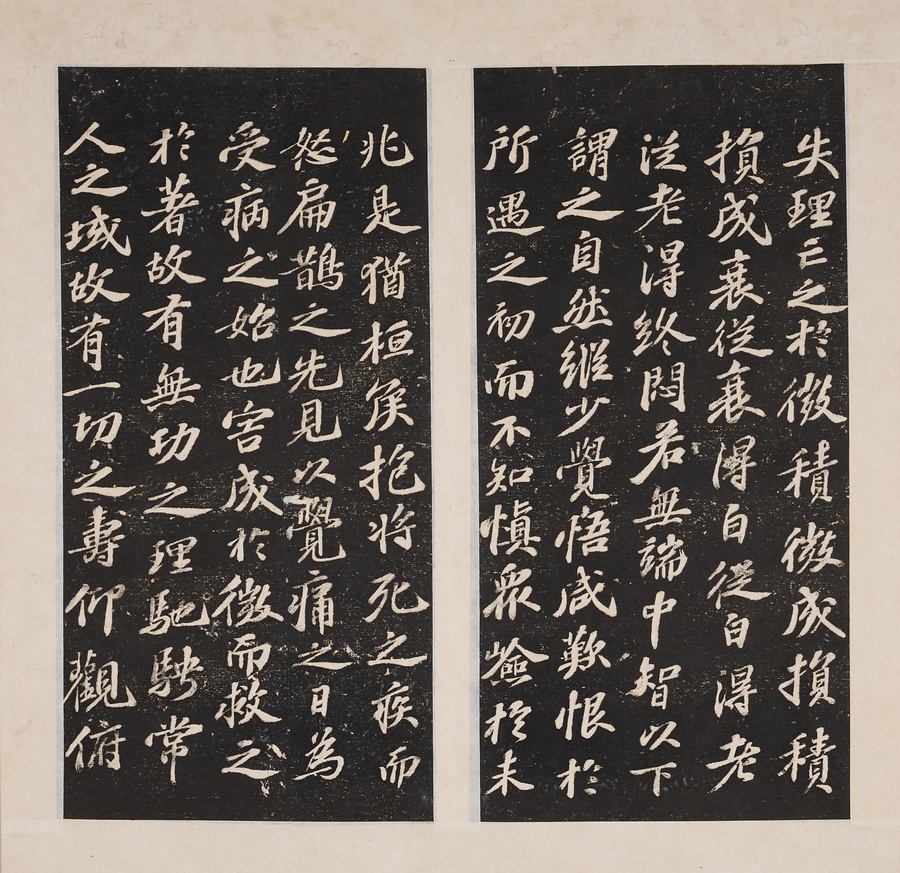 失理亡之於微積微成損積
損成衰從衰得白從白得老
從老得終悶若無端中智以下
謂之自然縱少覺悟咸歎恨於
所遇之初而不知慎眾險於未
兆是猶桓侯抱將死之疾而
怒扁鵲之先見以覺痛之日為
受病之始也害成於微而救之
於著故有無功之理馳騁常
人之域故有一切之壽仰觀俯